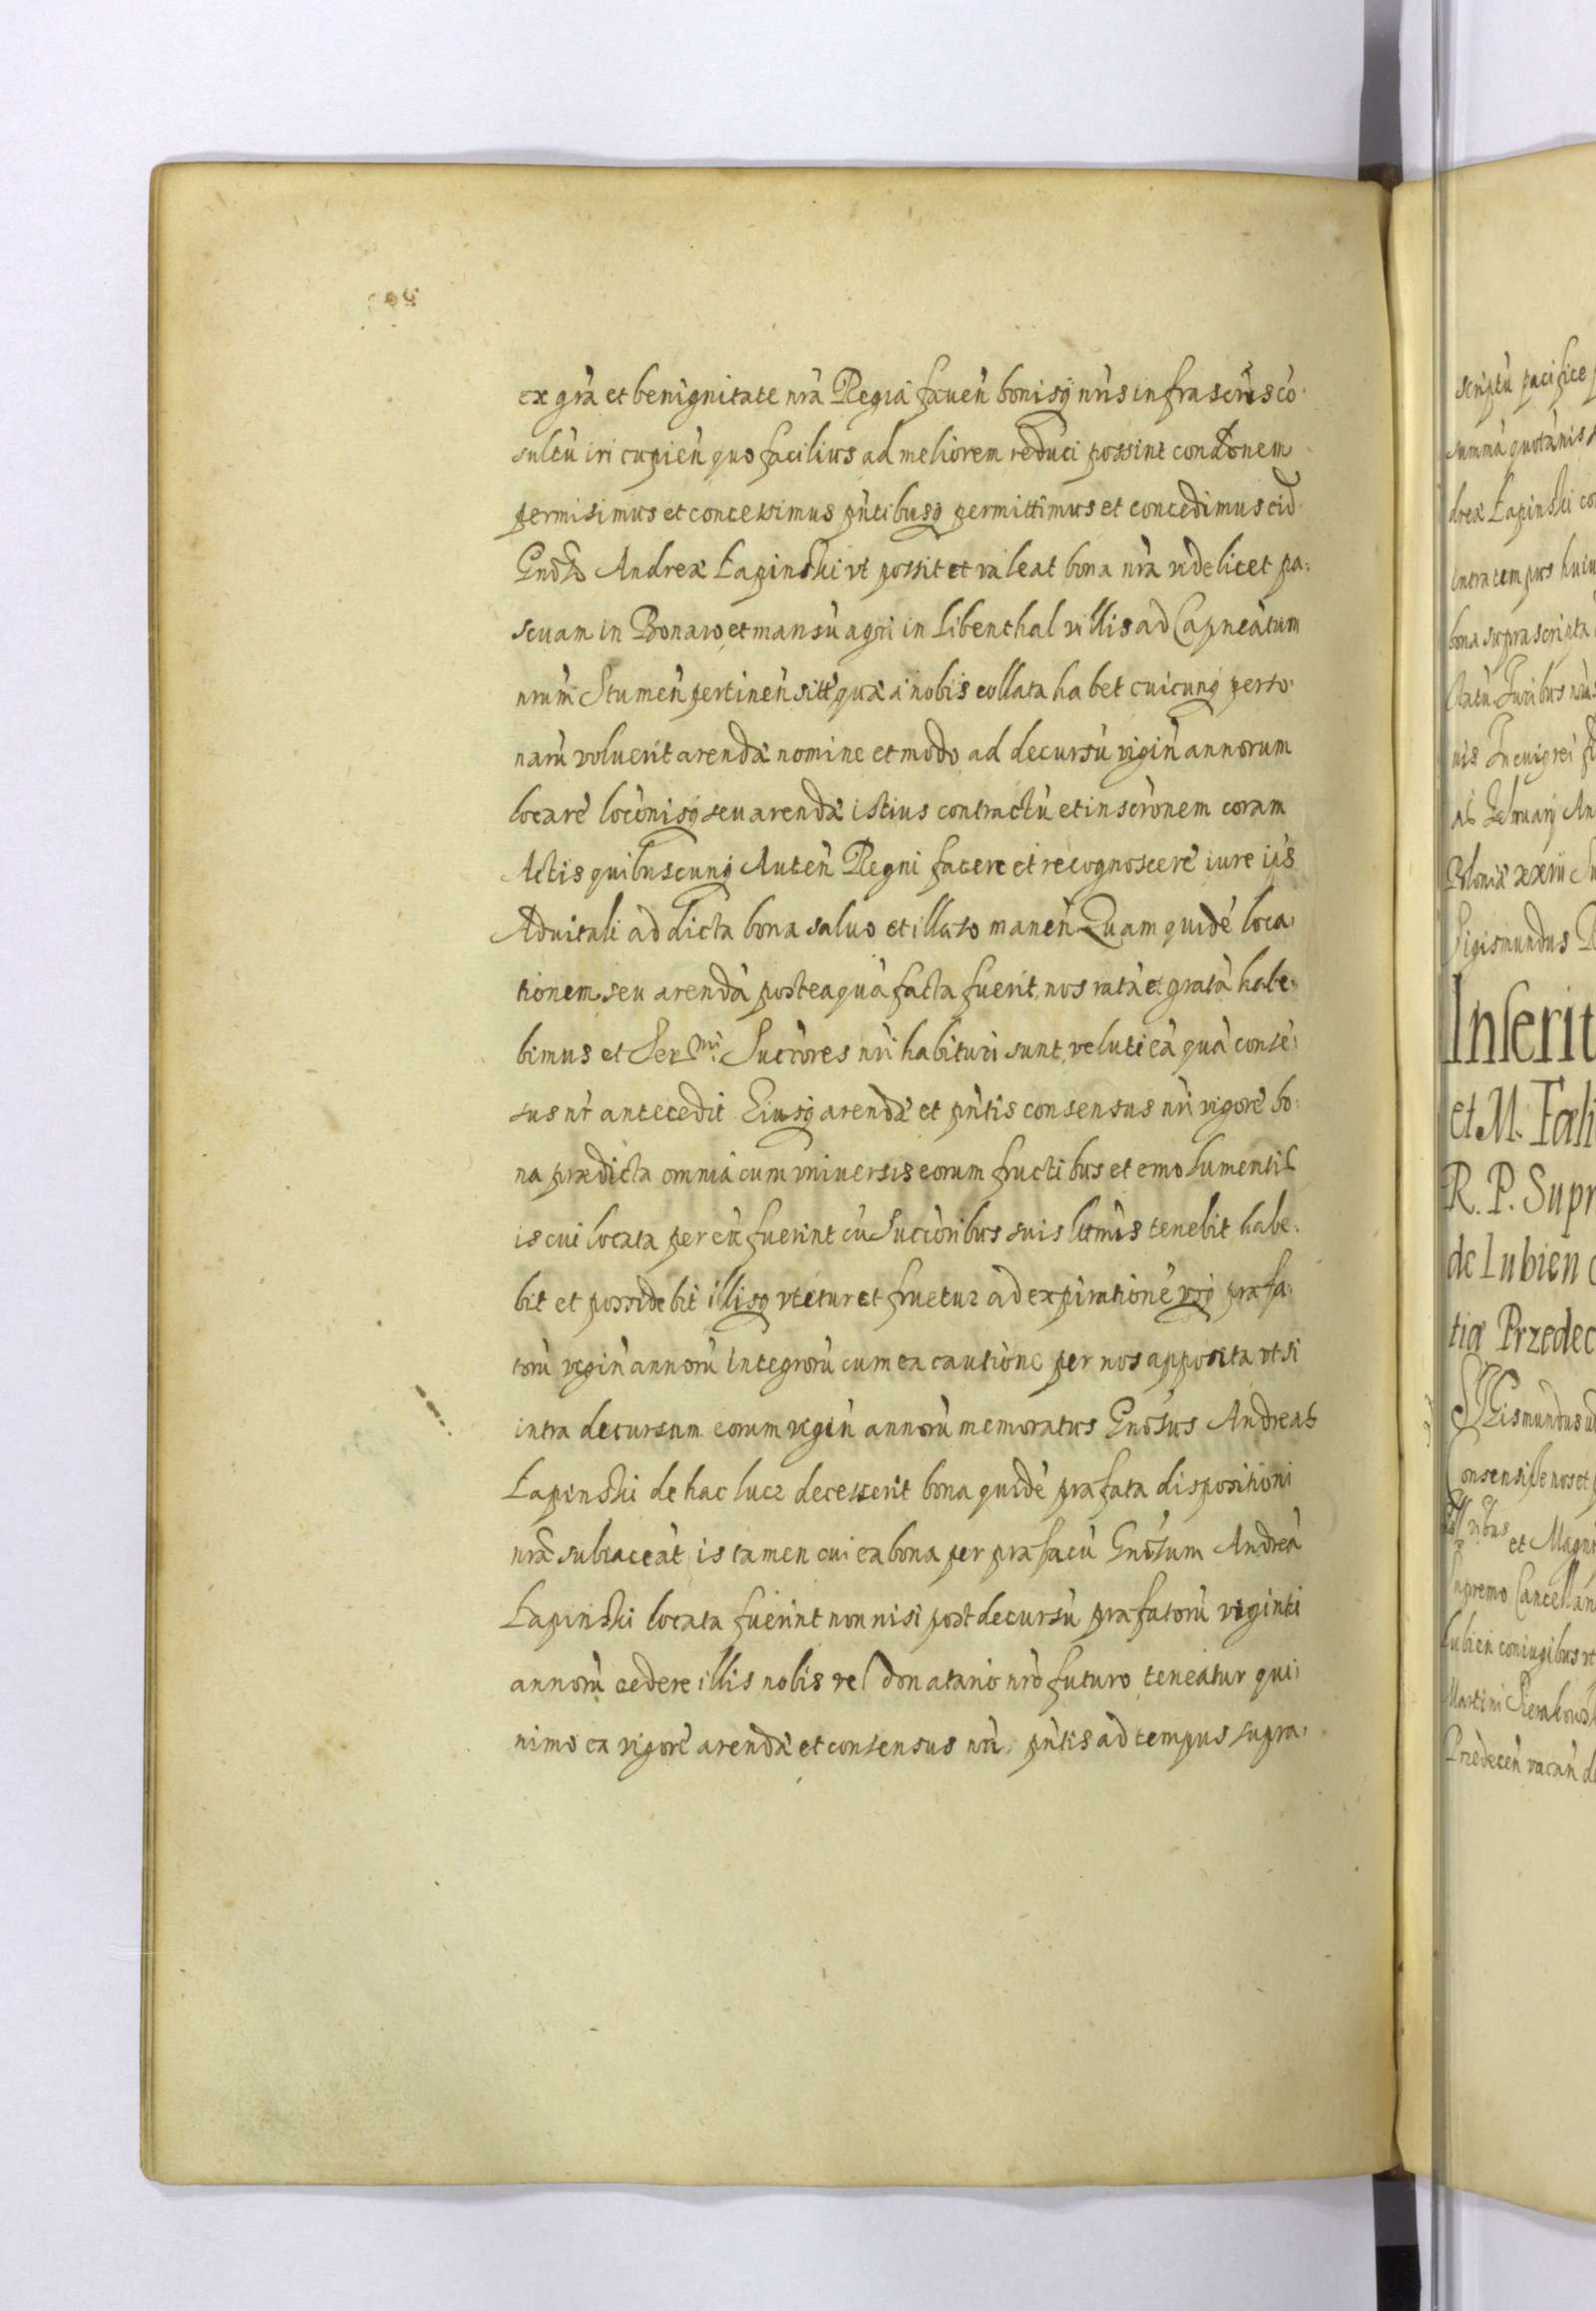 ex grã et benignitate nrã Regia faueñ bonisq nrĩs infrascrĩs cõ
sultũ iri cupieñ quo facilius ad meliorem reduci possint condõnem
permisimus et concessimus pñtibusq permittimus et concedimus eid
Gnõso Andreæ Łapinski vt possit et valeat bona nrã videlicet pa
scuam in Bonaro et mansũ agri in Libenthal villis ad Capneatum
nrũm Stumeñ pertineñ sitt quæ a nobis collata habet cuicunq perso
narũ voluerit arendæ nomine et modo ad decursũ vigiñ annorum
locare locõnisq seu arendæ istius contractũ et inscrõnem coram
Actis quibuscunq Auteñ Regni facere et recognoscere iure iis
Aduitali ad dicta bona saluo et illæso maneñ Quam quidẽ loca
tionem seu arendã posteaquã facta fuerit, nos ratã et gratã habe
bimus et Ser mi Succõres nrĩ habituri sunt, veluti eã quã consẽ
sus nr̃ antecedit Eiusq arendæ et pñtis consensus nrĩ vigore bo
na prædicta omnia cum vniuersis eorum fructibus et emolumentis
is cui locata per eũ fuerint cũ Succõribus suis ltmĩs tenebit habe
bit et possidebit illisq vtetur et fruetur ad expirationẽ vsq præfa
torũ vigiñ annorũ integrorũ cum ea cautione per nos apposita vt si
intra decursum eorum vigiñ annorũ memoratus Gnõsus Andreas
Łapinski de hac luce decesserit bona quidẽ præfata dispositioni
nræ subiaceãt is tamen cui ea bona per præfatũ Gnõsum Andreã
Łapinski locata fuerint non nisi post decursũ præfatorũ viginti
annorũ cedere illis nobis vel donatario nrõ futuro teneatur qui
nimo ea vigore arendæ et consensus nrĩ pñtis ad tempus supra
scriptũ pacifice
summã quotãnis
dreæ Łapinski
intra tempus
bona suprascripta
Juribus
Februarij
Poloniæ xxiii
Sigismundus
Inserit
et M. Fæli
R. P. Supr
de Lubien
tiæ Przedec
Sigismundus
Consensisse nos et
et Magni
Supremo Cancellari
Lubien coniugibus
Martini Sierakowsk
Przedeceñ vacañ